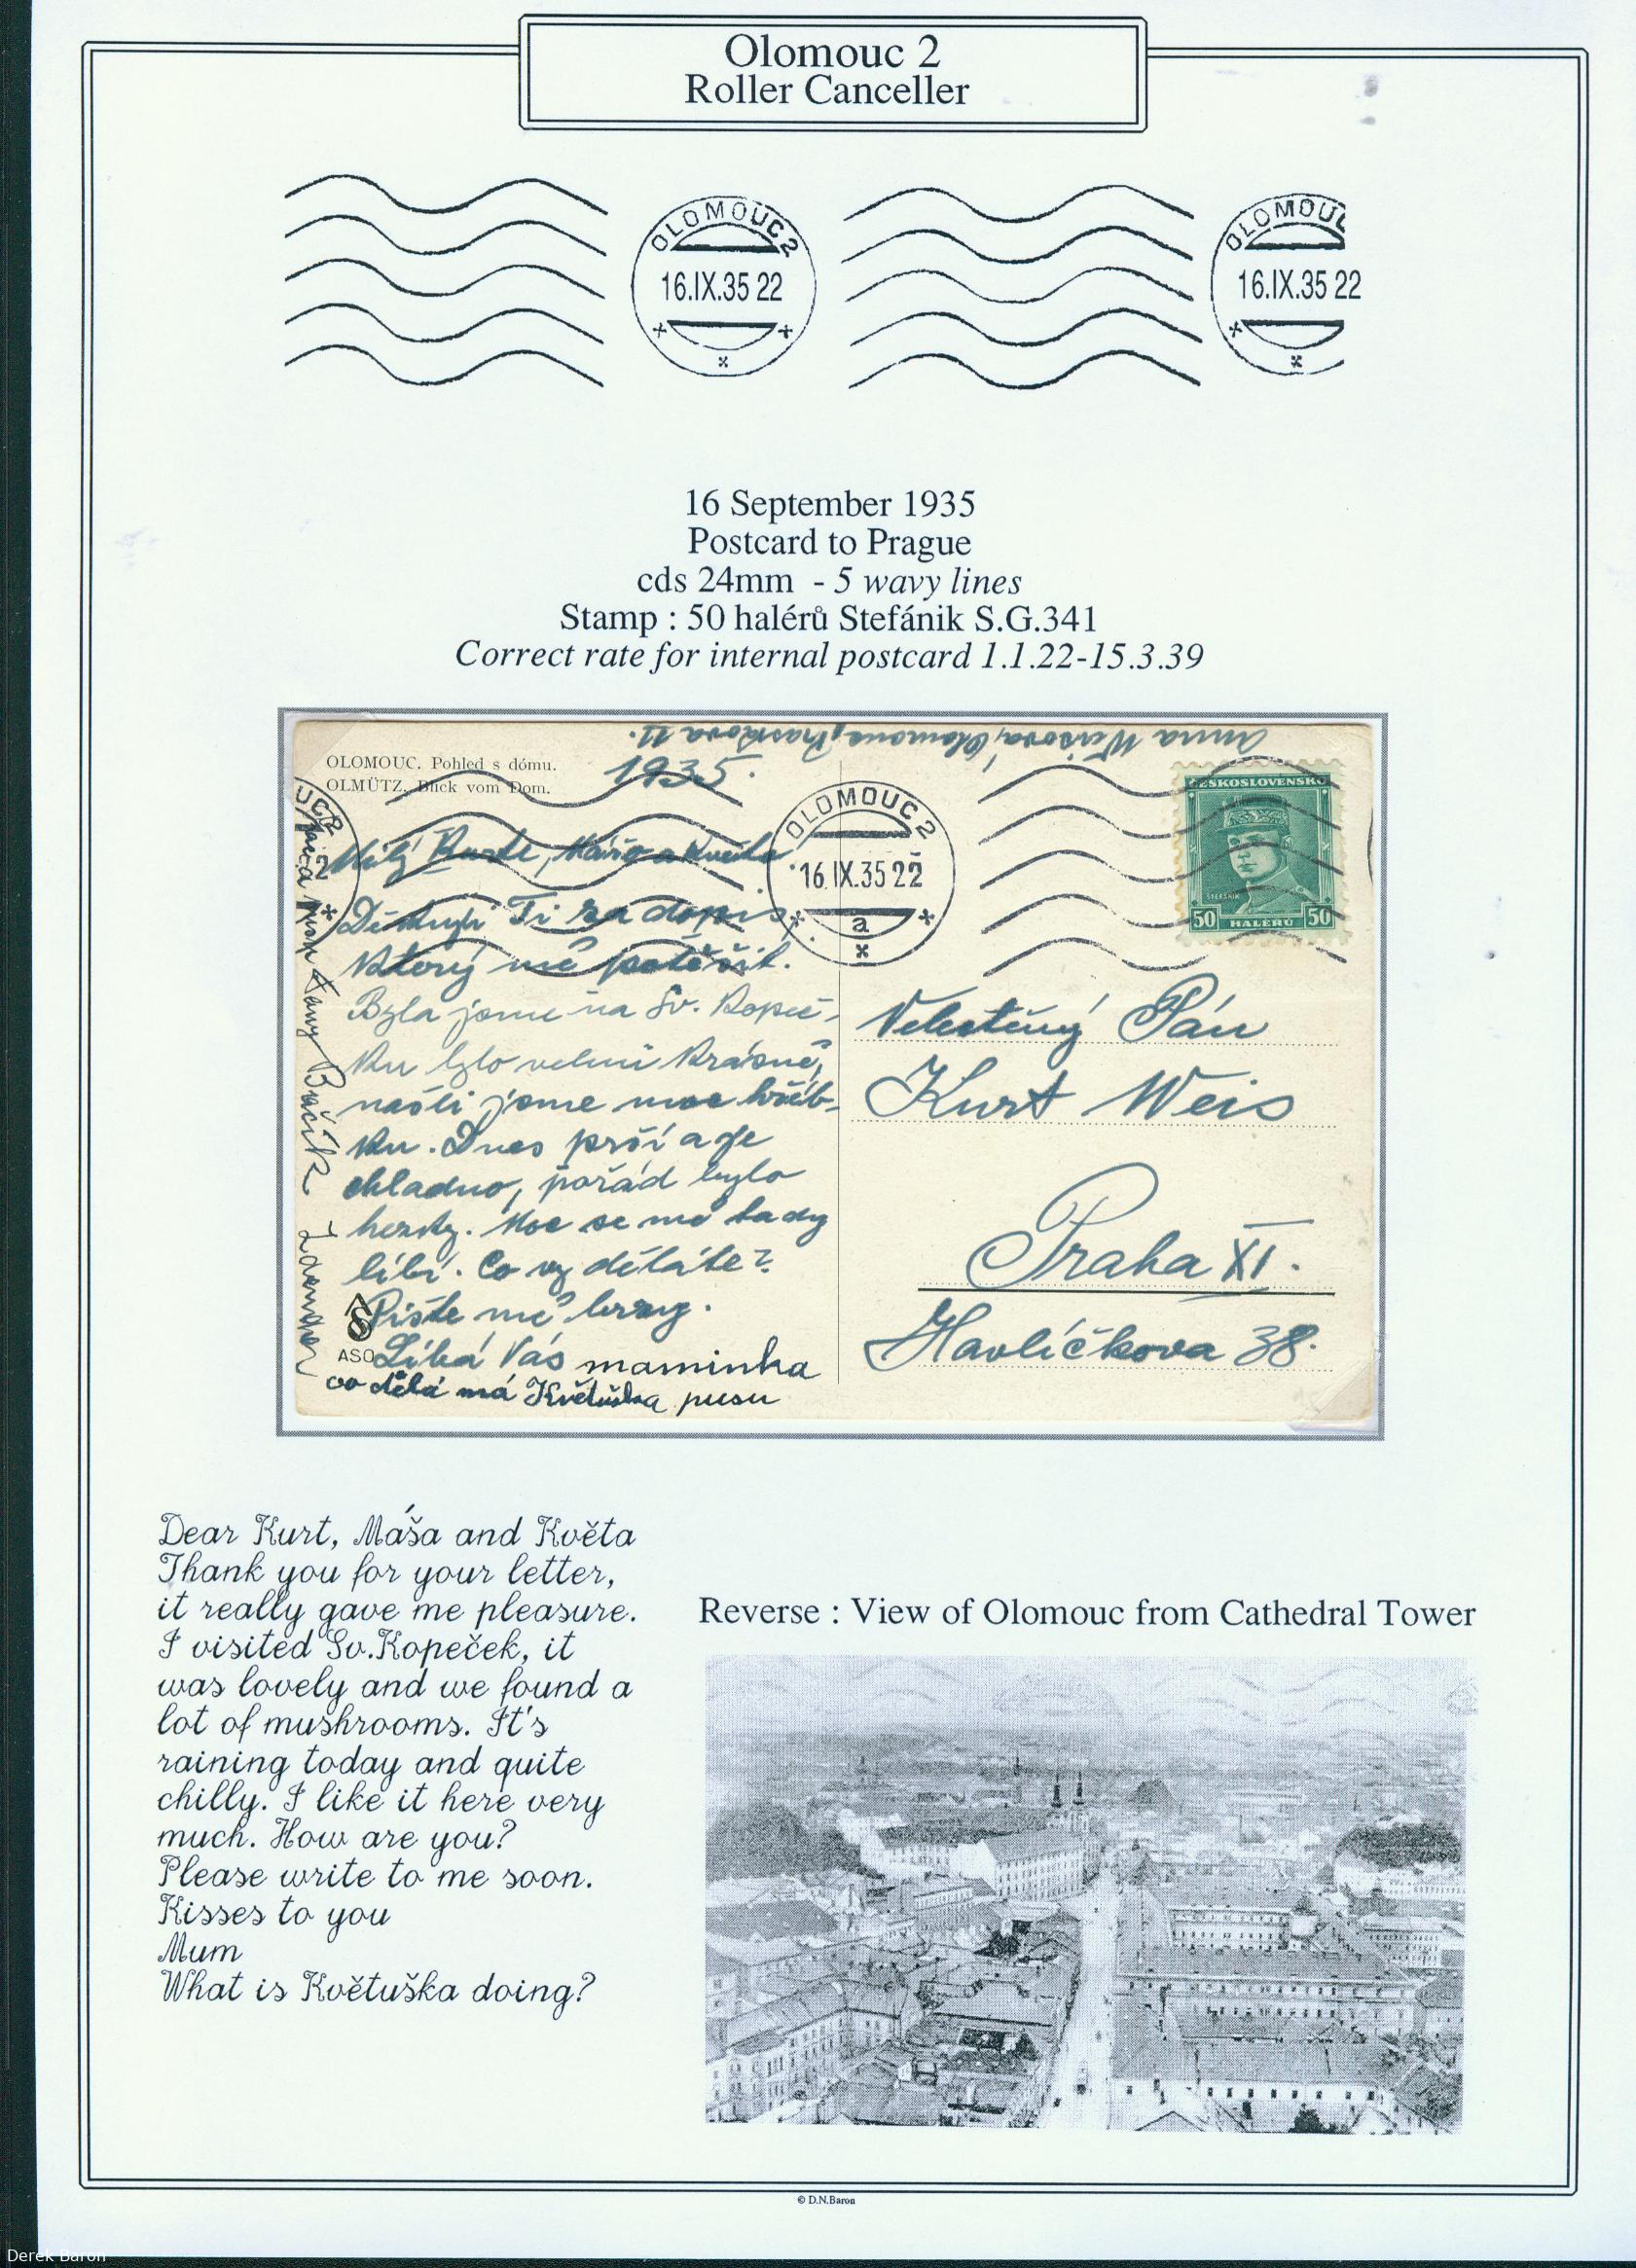 Olomouc 2
Roller Canceller
OLOMOUC 2
16.IX.35 22
OLOMOUC
16.IX.35 22
16 September 1935
Postcard to Prague
cds 24mm - 5 wavy lines
Stamp : 50 halérů Stefánik S.G.341
Correct rate for internal postcard 1.1.22-15.3.39
Anna Weisová, Olomouc, 11.
OLOMOUC. Pohled s dómu.
OLMÜTZ. Blick vom Dom.
1935.
OLOMOUC 2
16.IX.35 22
a
ČESKOSLOVENSKO
ŠTEFÁNIK
50 HALÉŘŮ 50
Milý Kurte, Mášo a Květo
Děkuji Ti za dopis
který mě potěšil.
Byla jsme na Sv. Kopeč-
ku bylo velmi krásně,
našli jsme moc hříb-
ku. Dnes prší a je
chladno, pořád bylo
hezky. Moc se mě tady
líbí. Co vy děláte?
Pište mě brzy.
Líbá Vás maminka
co dělá má Květuška pusu
ASO
Velectěný Pán
Kurt Weis
Praha XI.
Havlíčkova 38.
Dear Kurt, Máša and Květa
Thank you for your letter,
it really gave me pleasure.
I visited Sv.Kopeček, it
was lovely and we found a
lot of mushrooms. It's
raining today and quite
chilly. I like it here very
much. How are you?
Please write to me soon.
Kisses to you
Mum
What is Květuška doing?
Reverse : View of Olomouc from Cathedral Tower
© D.N.Baron
Derek Baron